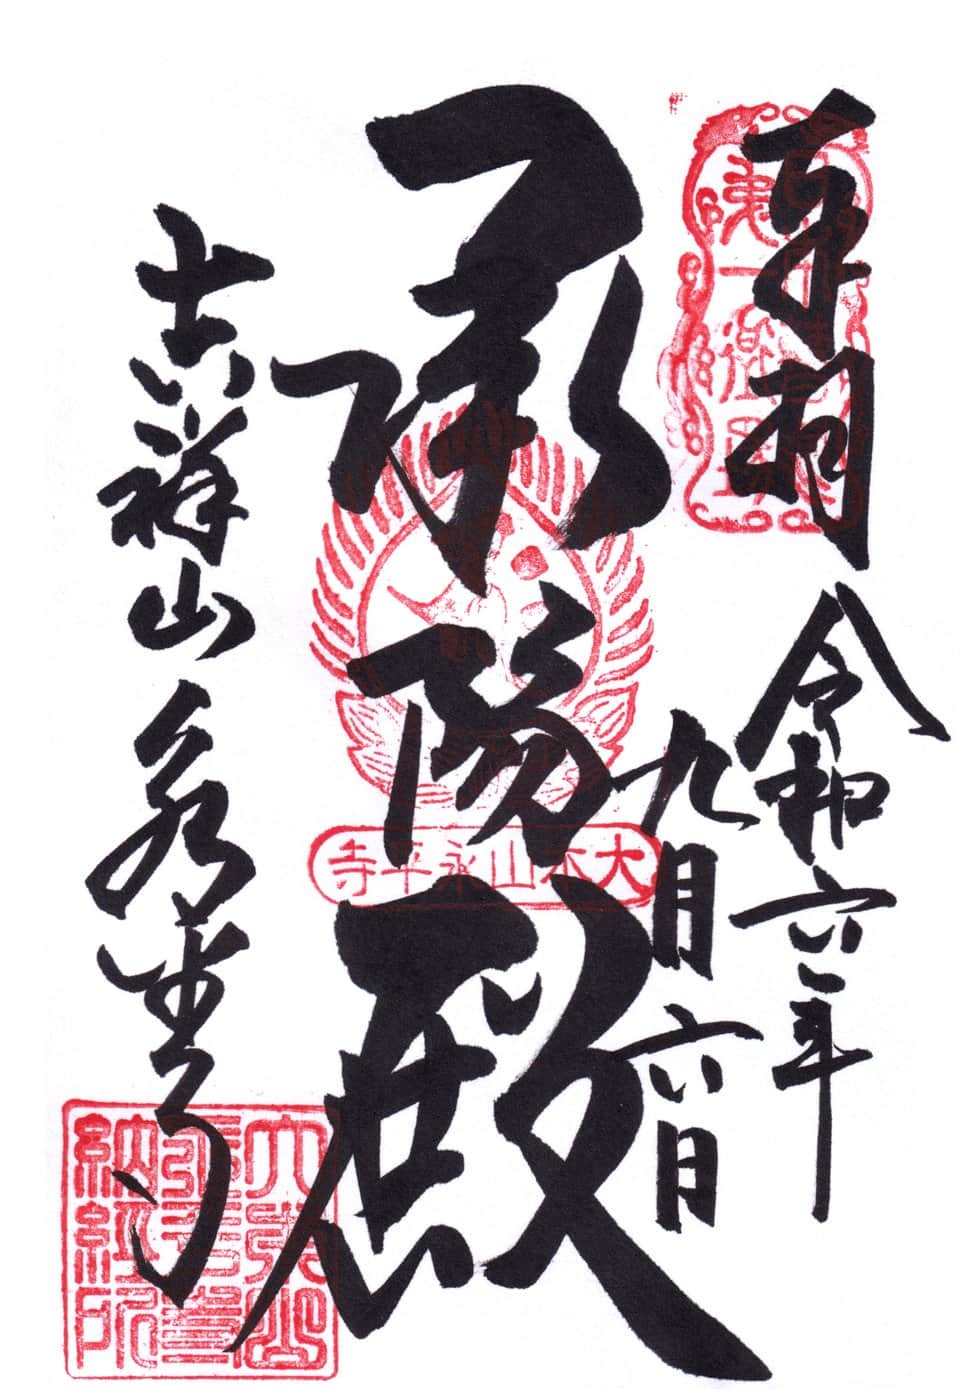 奉拝
令和六年
九月六日
承陽殿
大本山永平寺
吉祥山永平寺
納経所